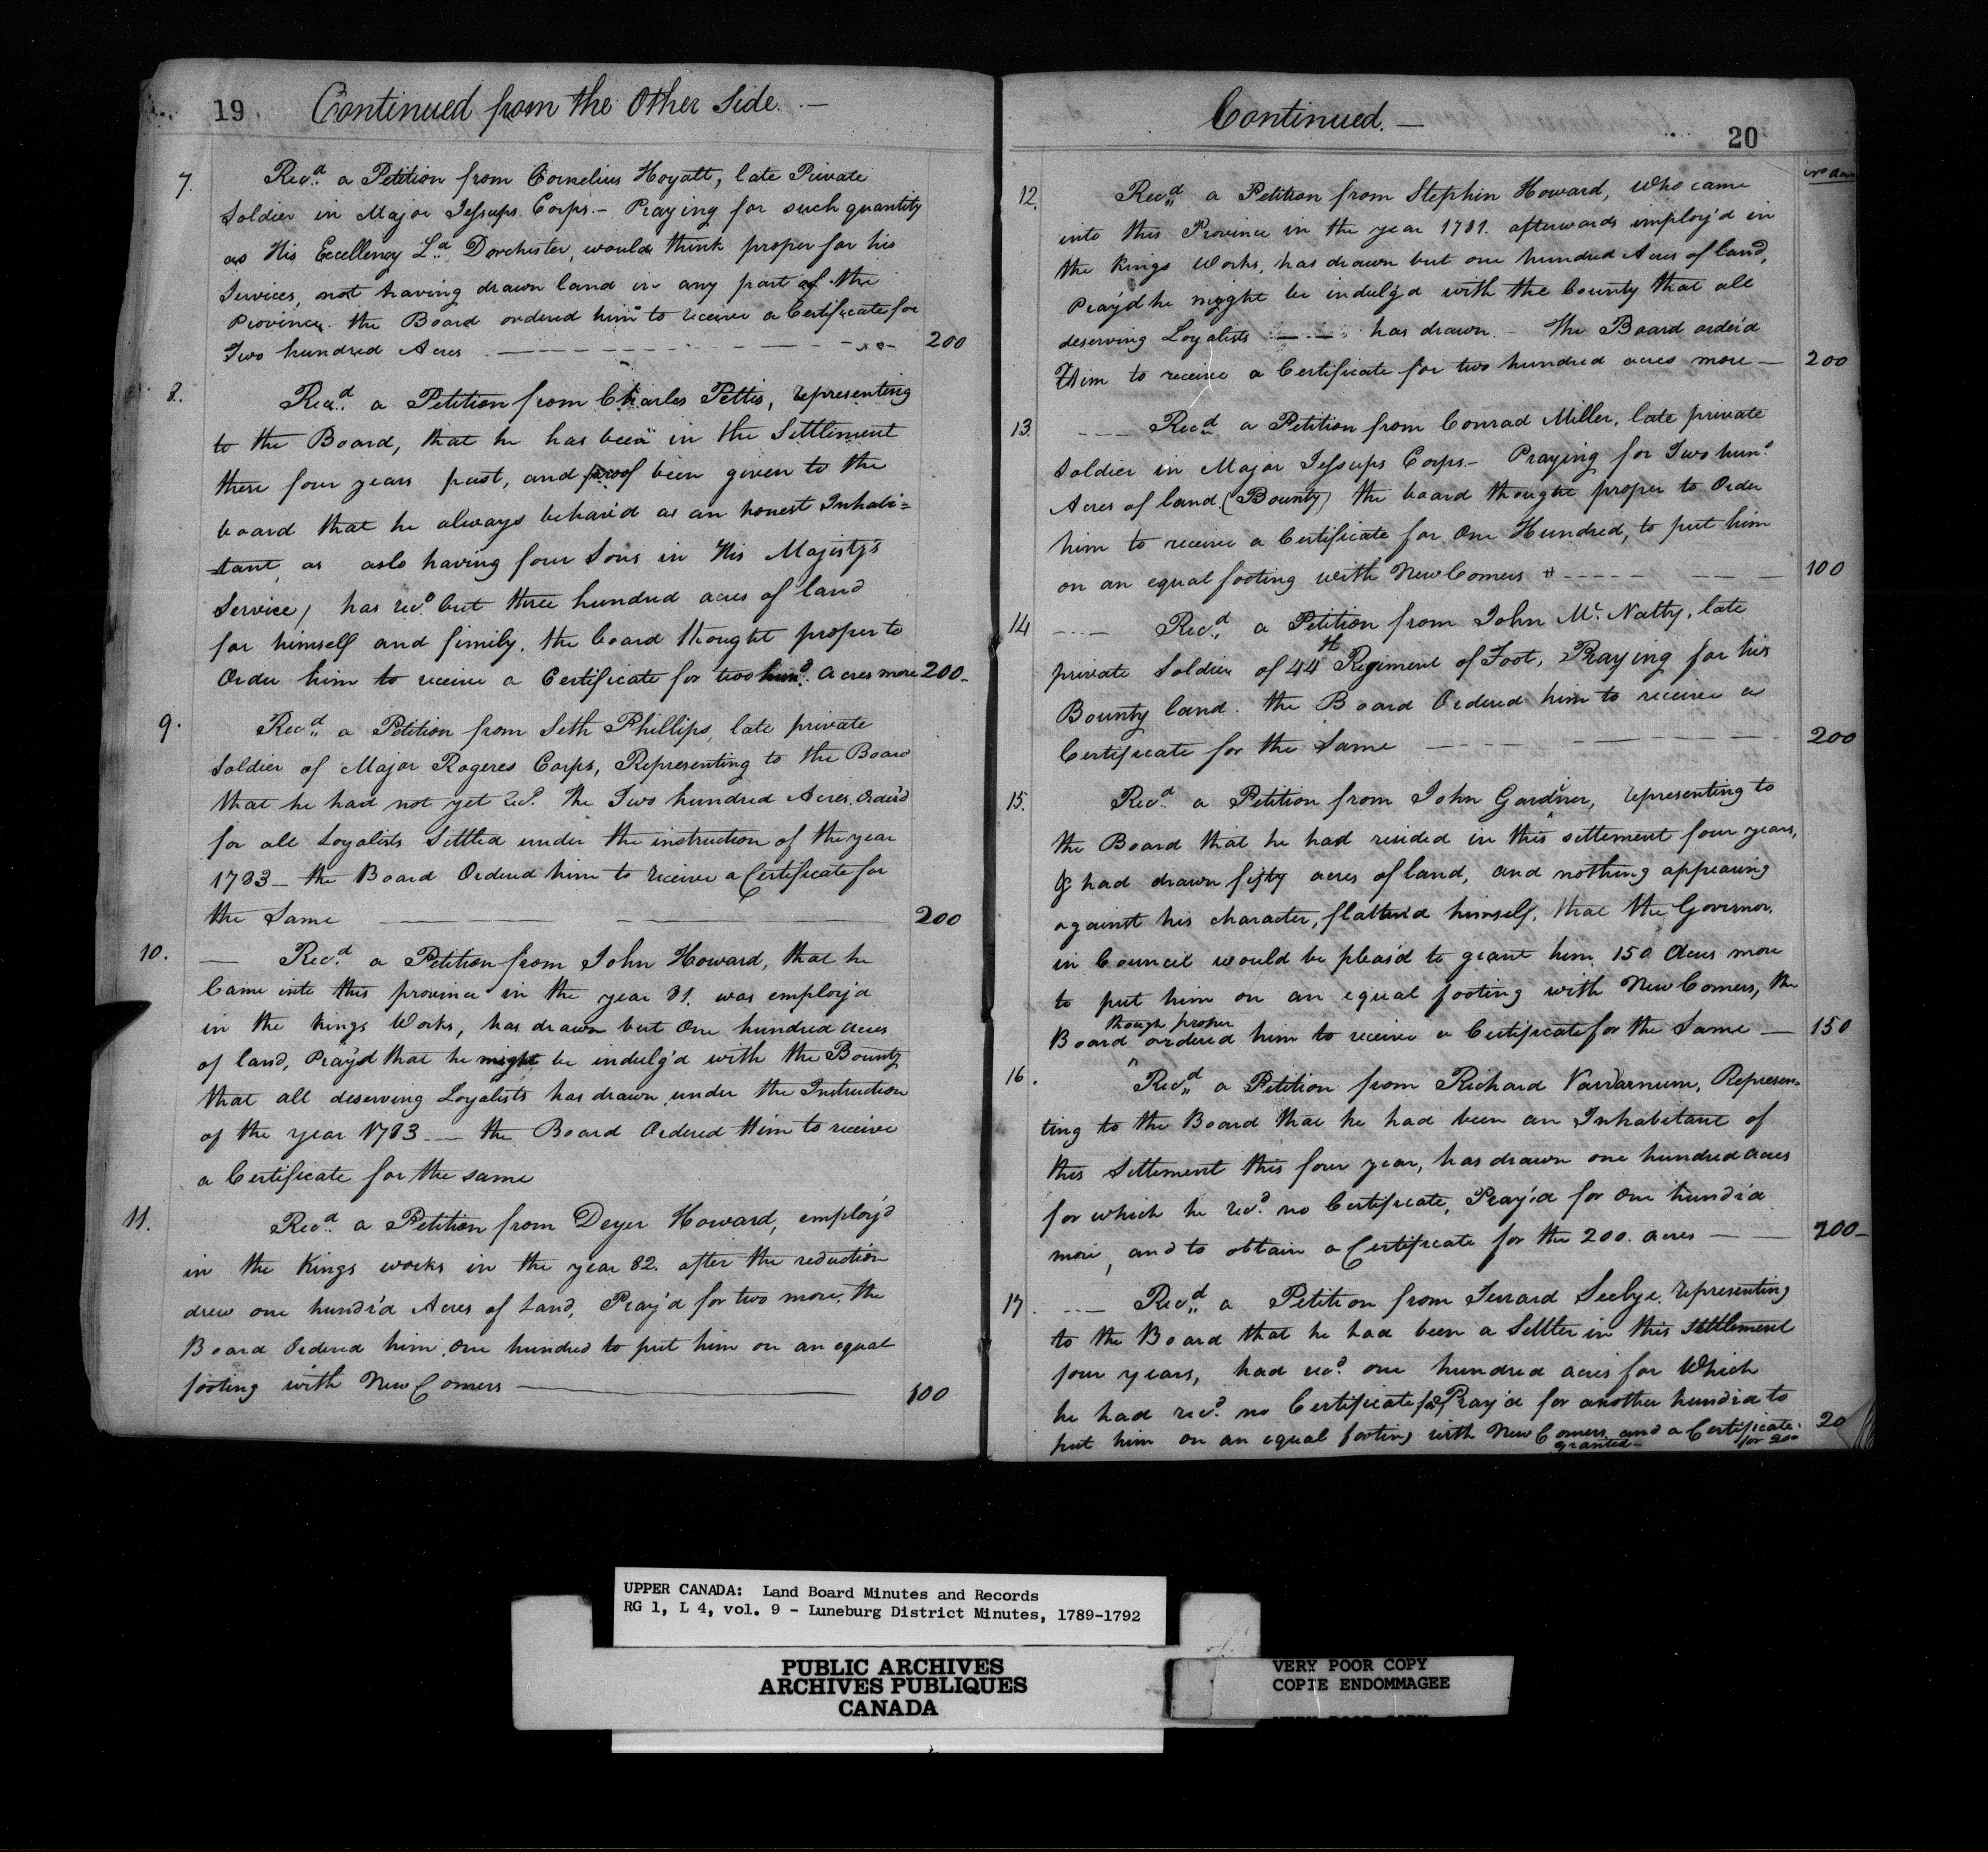 19 Continued from the Other Side. —
7. Recd. a Petition from Cornelius Hoyatt, late Private
Soldier in Major Jessups Corps. — Praying for such quantity
as His Excellency Ld. Dorchester, would think proper for his
Services, not having drawn land in any part of the
Province. the Board ordered him to receive a Certificate for
Two hundred Acres 200
8. Recd. a Petition from Charles Pettis, representing
to the Board, that he has been in the Settlement
these four years past, and proof been given to the
board that he always behav'd as an honest Inhabi=
tant, as aslo having four Sons in His Majesty's
Service, has recd. but three hundred acres of land
for himself and fimily, the board thought proper to
Order him to receive a Certificate for two hund. acres more 200—
9. Recd. a Petition from Seth Phillips, late private
Soldier of Major Rogeres Corps, Representing to the Board
that he had not yet recd. the Two hundred Acres Order'd
for all Loyalists Settled under the instruction of the year
1783 — the Board Ordered him to receive a Certificate for
the Same 200
10. — Recd. a Petition from John Howard, that he
Came into this province in the year 81. was employ'd
in the Kings Works, has drawn but One hundred acres
of land, Pray'd that he might be indulg'd with the Bounty
that all deserving Loyalists has drawn under the Instruction
of the year 1783 — the Board Ordered Him to receive
a Certificate for the same
11. Recd. a Petition from Deyer Howard, employ'd
in the Kings works in the year 82. after the reduction
drew one hundr'd Acres of Land, Pray'd for two more, the
Board Ordered him, One hundred to put him on an equal
footing with New Comers 100
Continued. — 20
12. Recd. a Petition from Stephin Howard, who came
into this Province in the year 1781. afterwards employ'd in
the Kings Works, has drawn but one hundred Acres of land,
Pray'd he might be indulg'd with the bounty that all
deserving Loyalists — has drawn. — the Board order'd
Him to receive a Certificate for two hundred acres more — 200
13. Recd. a Petition from Conrad Miller, late private
Soldier in Major Jessups Corps — Praying for Two hund.
Acres of land (Bounty) the board thought proper to Order
him to receive a Certificate for One Hundred, to put him
on an equal footing with New Comers 100
14 Recd. a Petition from John Mc. Natty, late
private Soldier of 44th Regiment of Foot, Praying for his
Bounty land. the Board Ordered him to receive a
Certificate for the Same 200
15. Recd. a Petition from John Gardner, representing to
the Board that he had resided in this settlement four years,
& had drawn fifty acres of land, and nothing appearing
against his character, flatter'd himself, that the Governor,
in Council would be pleas'd to grant him, 150 Acres more
to put him on an equal footing with New Comers, the
though proper
Board ^ ordered him to receive a Certificate for the Same — 150
16. Recd. a Petition from Richard Vandarnum, Represen=
ting to the Board that he had been an Inhabitant of
this Settlement this four year, has drawn one hundred acres
for which he recd. no Certificate, Pray'd for One hundr'd
more, and to obtain a Certificate for the 200. acres — 200—
17 Recd. a Petition from Jerrard Seelye. representing
to the Board that he had been a Settler in this Settlement
four years, had recd. one hundred acres for Which
he had recd. no Certificate Pray'd for another hundr'd to
put him on an equal footing with New Comers and a Certificate 20
granted — for 200
UPPER CANADA: Land Board Minutes and Records
RG 1, L 4, vol. 9 - Luneburg District Minutes, 1789-1792
PUBLIC ARCHIVES
ARCHIVES PUBLIQUES
CANADA
VERY POOR COPY
COPIE ENDOMMAGEE
VERY POOR COPY